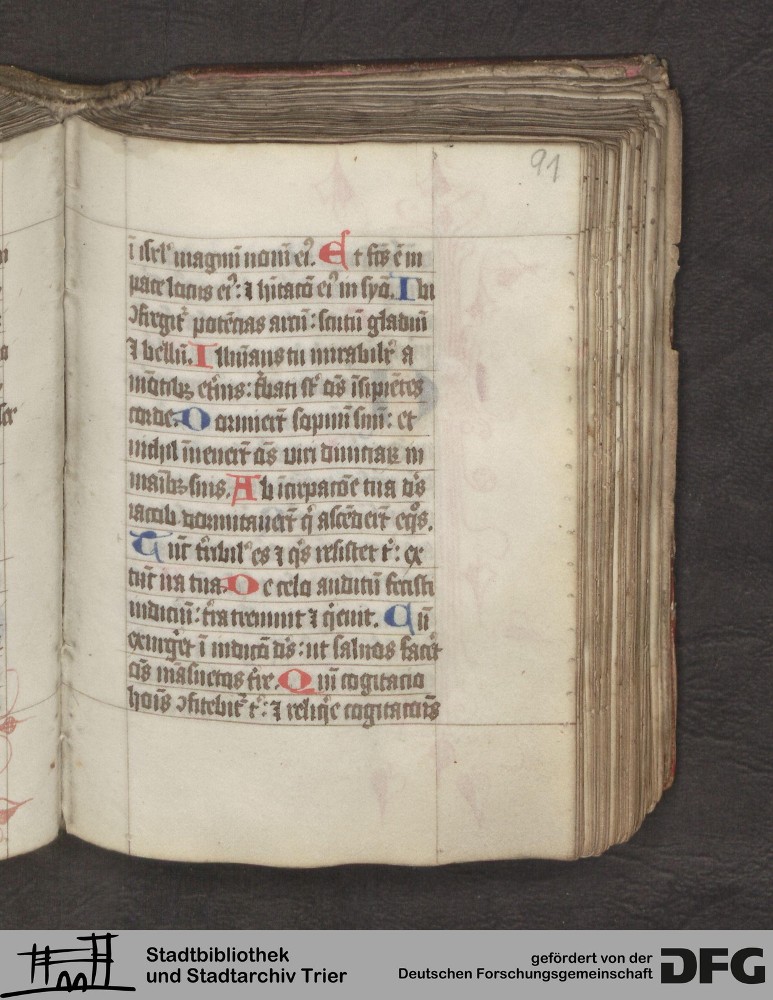 91
ī isrl' magnū nomē ei⁹. Et fcūs ē in
pace locus ei⁹: ⁊ hītacō ei⁹ in syō. Ibi
ↄfregit potēcias arcuū: scutū gladiū
⁊ bellū. Illuīans tu mirabilit' a
mōtibꝫ et'nis: t'bati sūt oēs īsipiētes
corde. Dormierūt sopnū suū: et
nichil īuenerūt oēs uiri diuitiaꝝ in
maibꝫ suis. Ab īcrepacōe tua d's
iacob dormitauerūt q̄ ascēderūt eq̊s.
Tu t'ribil' es ⁊ q̄s resistet t': ex
tūc ira tua. De celo auditū fecisti
iudiciū: t'ra tremuit ⁊ q̄euit. Cū
exurg'et ī iudiciū d's: ut saluos facet
oēs māsuetos t're. Qm̄ cogitacio
hoīs ↄfitebit' t': ⁊ reliq̄e cogitacōīs
Stadtbibliothek
und Stadtarchiv Trier
gefördert von der
Deutschen Forschungsgemeinschaft
DFG